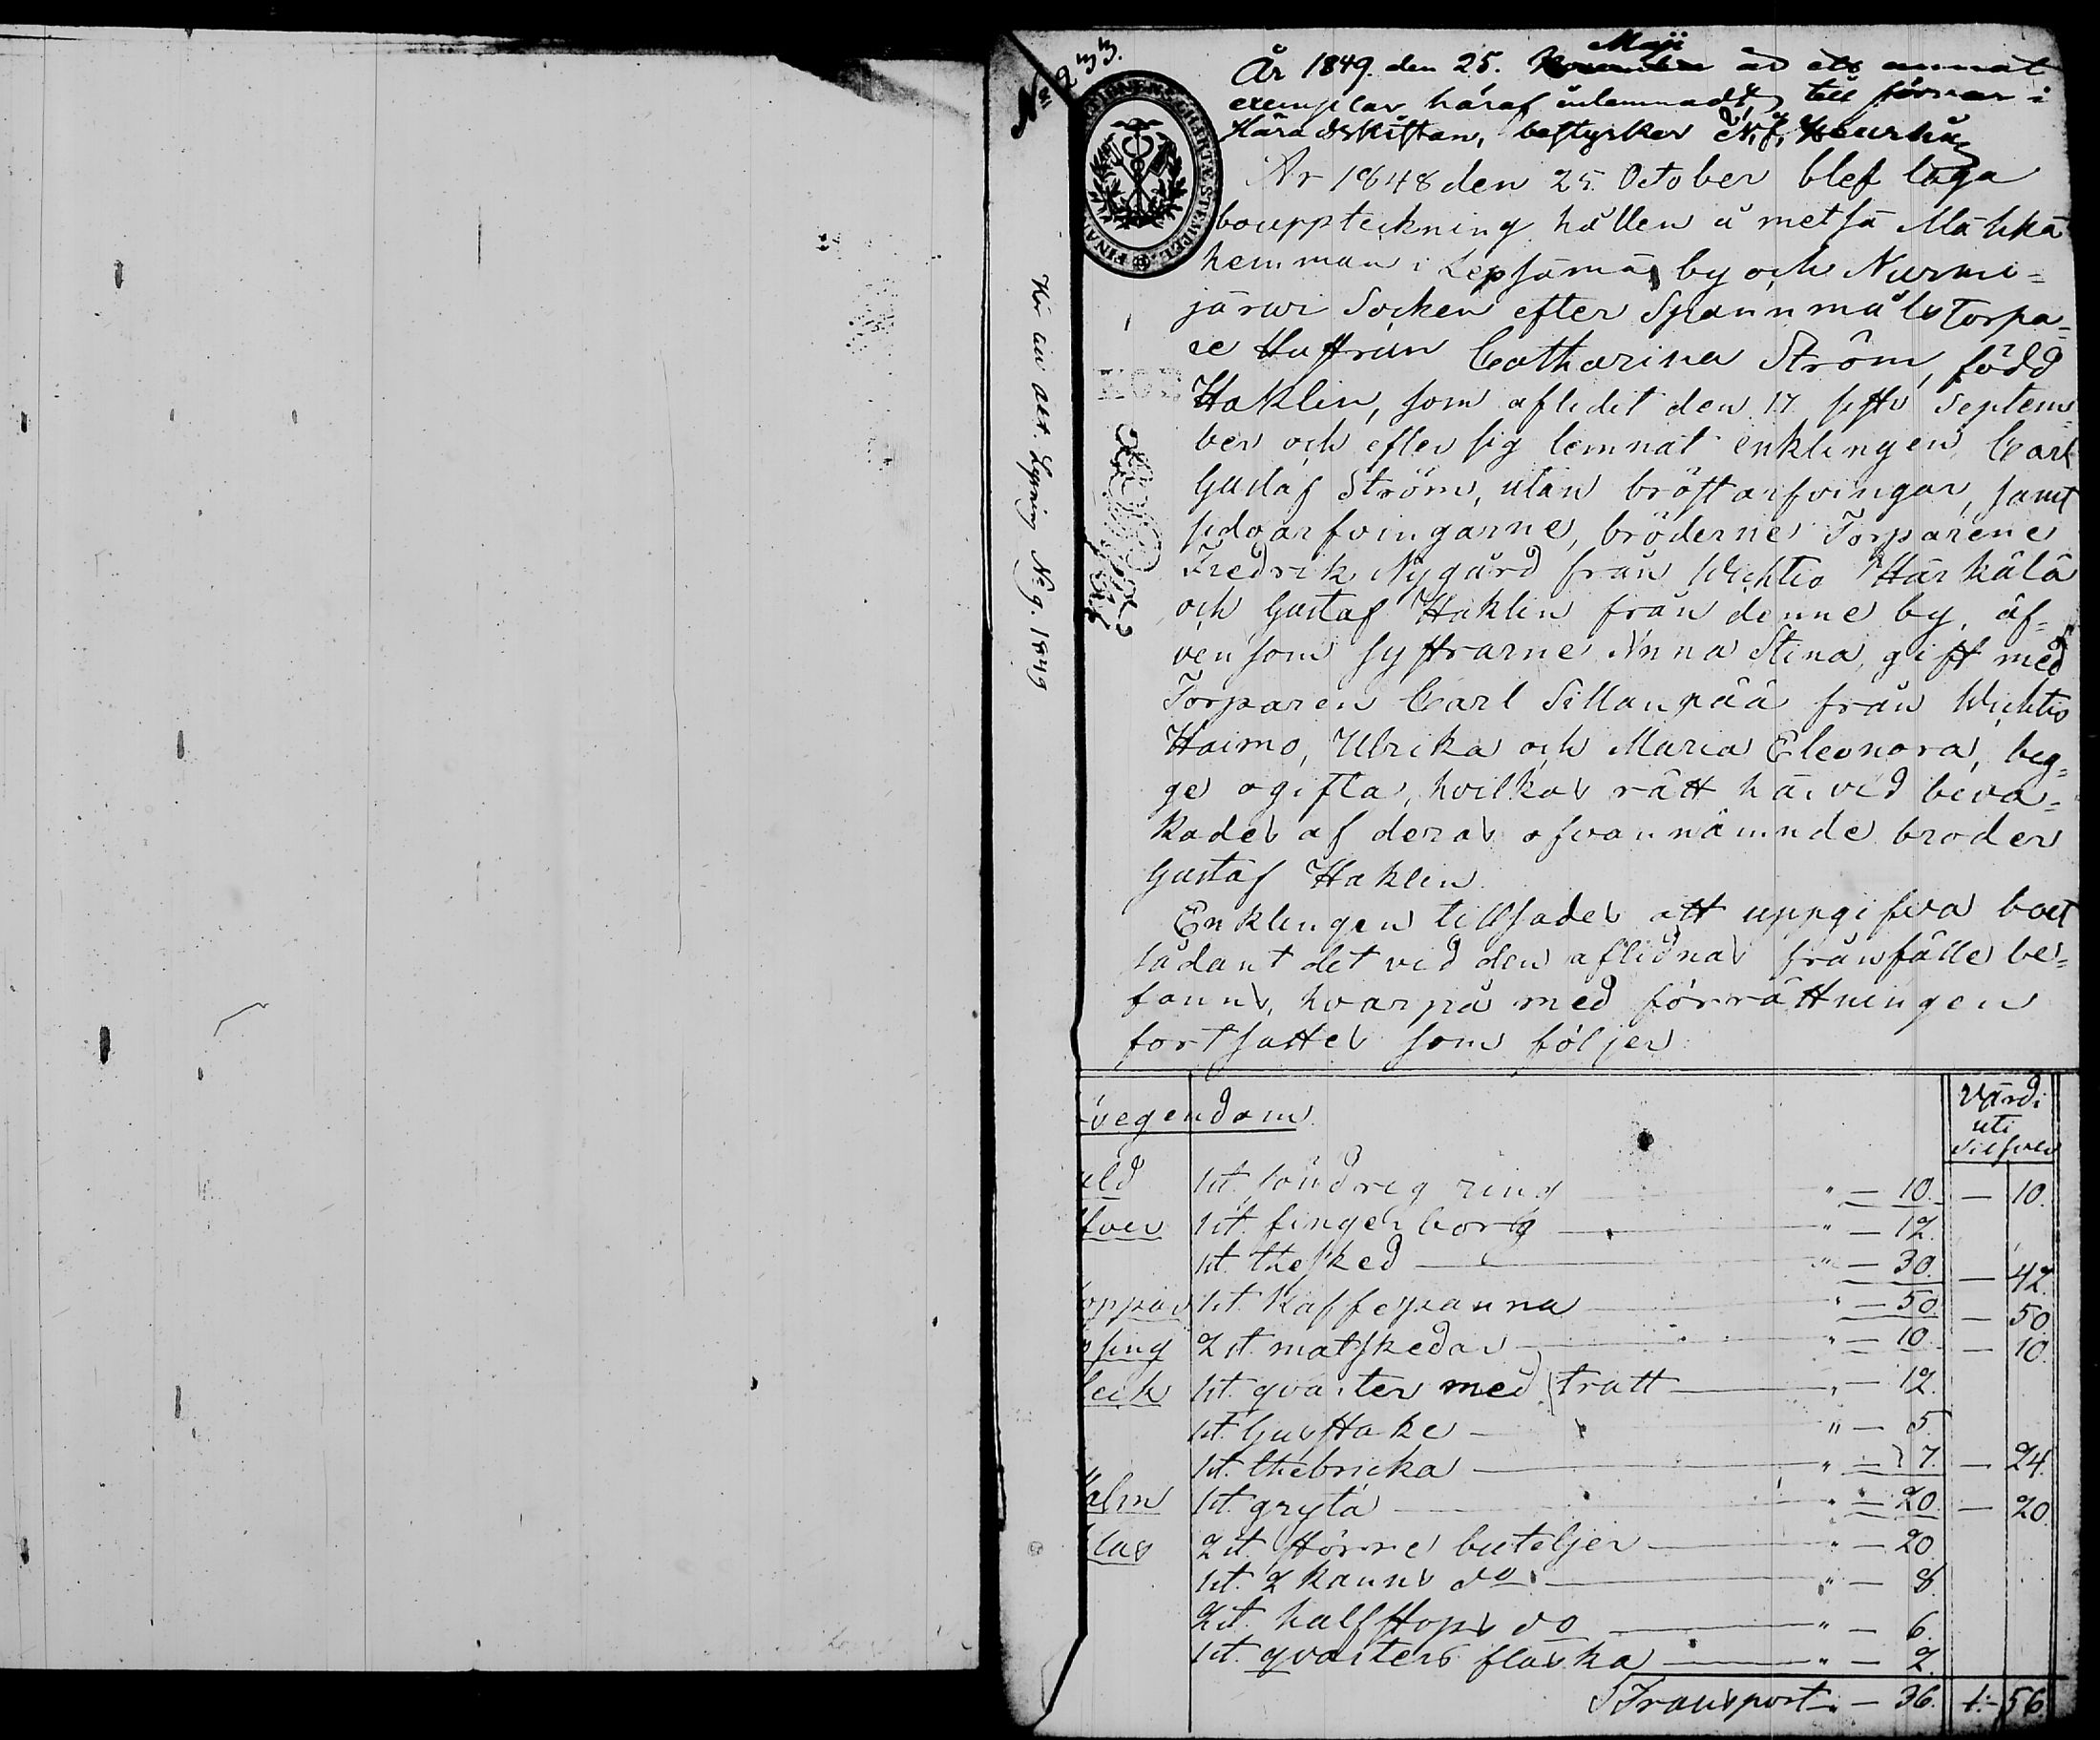 233.
År 1849. den 25. Maji är ett annat
exemplar häraf inlemnadt till förvar i
Häradskistan, bestyrker
År 1848 den 25. October blef laga
bouppteckning hållen å metsä Mähkä
hemman i Lepsämä by och Nurmi=
järwi Socken efter Spannmåls Torpa=
re Hustrun Catharina Ström, född
Haklin, som aflidit den 17 sistl. Septem=
ber och efter sig lemnat enklingen Carl
Gustaf Ström, utan bröstarfvingar, samt
sidoarfvingarne, bröderne Torparene
Fredrik Nygård från Wichtis Härkälä
och Gustaf Haklin från denne by, äf=
vensom systrarne Anna Stina, gift med
Torparen Carl Sillanpää från Wichtis
Haimo, Ulrika och Maria Eleonora, beg=
ge ogifta, hvilkas rätt härvid beva=
kades af deras ofvannämnde broder
Gustaf Haklin.
Enklingen tillsades att uppgifva boet
sådant det vid den aflidnas frånfälle be=
fanns, hvarpå med förrättningen
fortsattes som följer:
vegendom
Värdi
uti
Silfver
uld 1 st. söndrig ring " — 10. — 10.
fver 1 st. fingerborg " — 12.
1 st. thesked " — 30. — 42.
oppar 1 st. Kaffepanna " — 50. — 50
sing 2 st. matskedar " — 10. — 10.
leck 1 st. qvarter med tratt " — 12.
1 st. ljusstake " — 5.
1 st. thebricka " — 7. — 24.
alm 1 st. gryta " — 20. — 20.
las 2 st. större buteljer " — 20.
1 st. 2 kanns do " — 8.
2 st. halfstops do " — 6.
1 st. qvarters flaska " — 2.
Transport — 36. 1.- 56.
FINA CHARTE STEMPEL
Lysning No 9. 1849